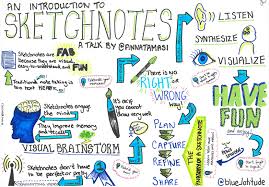 AN INTRODUCTION TO
SKETCHNOTES
A TALK BY @ANNATAMASI
LISTEN
SYNTHESIZE
VISUALIZE
Sketchnotes are FAB
because they are visual,
easy to understand and FUN
Traditional note taking is
too text HEAVY
There is no
RIGHT or
WRONG
way!
HAVE
FUN
and enjoy!
Sketchnotes engage
the mind
They improve memory
and recall
It's ok if
you cannot
draw very well
VISUAL BRAINSTORM
PLAN
CAPTURE
REFINE
SHARE
THE
OF SKETCHNOTE
Sketchnotes don't have
to be perfect or pretty
@blue_latitude